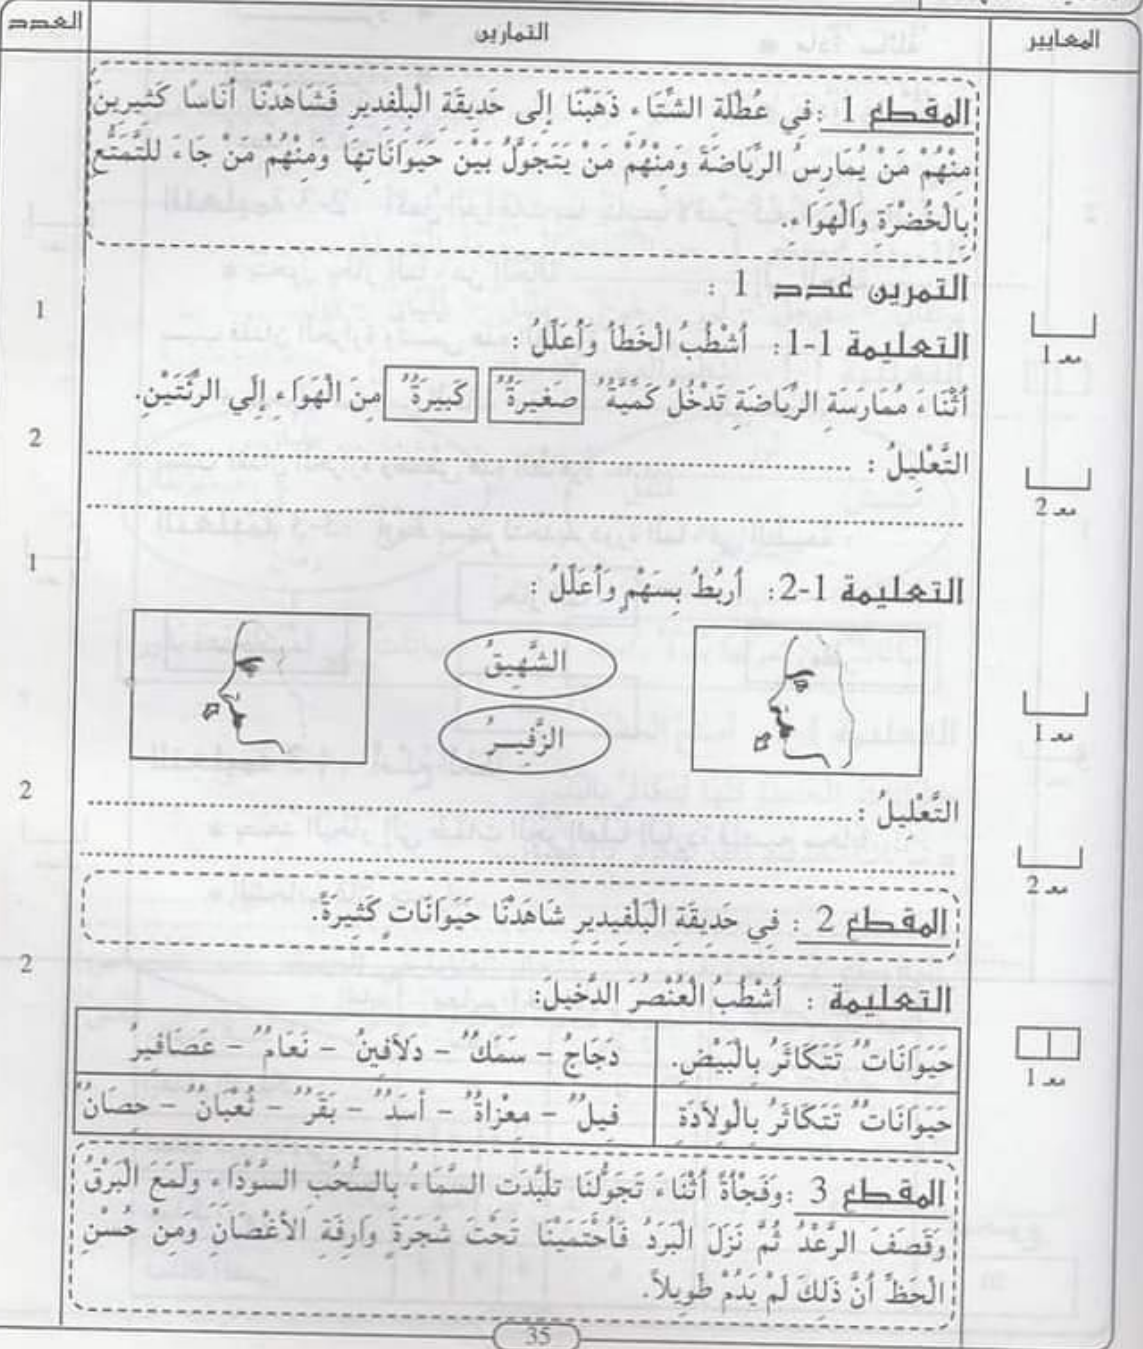 المعايير التمارين العدد
المقطع 1 : فِي عُطْلَةِ الشِّتَاء ذَهَبْنَا إِلَى حَدِيقَةِ الْبِلْفِدِيرِ فَشَاهَدْنَا أُنَاسًا كَثِيرِينَ
مِنْهُمْ مَنْ يُمَارِسُ الرِّيَاضَةَ وَمِنْهُمْ مَنْ يَتَجَوَّلُ بَيْنَ حَيَوَانَاتِهَا وَمِنْهُمْ مَنْ جَاءَ للتَّمَتُّعِ
بِالْخُضْرَةِ وَالْهَوَاءِ.
التمرين عدد 1 :
التعليمة 1-1: أَشْطُبُ الْخَطَأَ وَأُعَلِّلُ :
1
معـ 1
أَثْنَاءَ مُمَارَسَةِ الرِّيَاضَةِ تَدْخُلُ كَمِّيَّةٌ صَغِيرَةٌ كَبِيرَةٌ مِنَ الْهَوَاءِ إِلَي الرِّئَتَيْنِ.
التَّعْلِيلُ :
2
معـ 2
التعليمة 1-2: أَرْبُطُ بِسَهْمٍ وَأُعَلِّلُ :
1
معـ 1
الشَّهِيقُ
الزَّفِيــرُ
التَّعْلِيلُ :
2
معـ 2
المقطع 2 : فِي حَدِيقَةِ الْبَلْفِيدِيرِ شَاهَدْنَا حَيَوَانَاتٍ كَثِيرَةً.
التعليمة : أَشْطُبُ الْعُنْصُرَ الدَّخِيلَ:
2
معـ 1
حَيَوَانَاتٌ تَتَكَاثَرُ بِالْبَيْضِ. دَجَاجُ – سَمَكٌ – دَلاَفِينُ – نَعَامٌ – عَصَافِيرُ
حَيَوَانَاتٌ تَتَكَاثَرُ بِالْوِلاَدَةِ فِيلٌ – مِعْزَاةٌ – أَسَدٌ – بَقَرٌ – ثُعْبَانٌ – حِصَانٌ
المقطع 3 :وَفَجْأَةً أَثْنَاءَ تَجَوُّلِنَا تلَبَّدَت السَّمَاءُ بِالسُّحُبِ السَّوْدَاءِ وَلَمَعَ الْبَرْقُ
وَقَصَفَ الرَّعْدُ ثُمَّ نَزَلَ الْبَرَدُ فَاُحْتَمَيْنَا تَحْتَ شَجَرَةٍ وَارِفَةِ الأَغْصَانِ وَمِنْ حُسْنِ
الْحَظِّ أَنَّ ذَلِكَ لَمْ يَدُمْ طَوِيلاً.
35